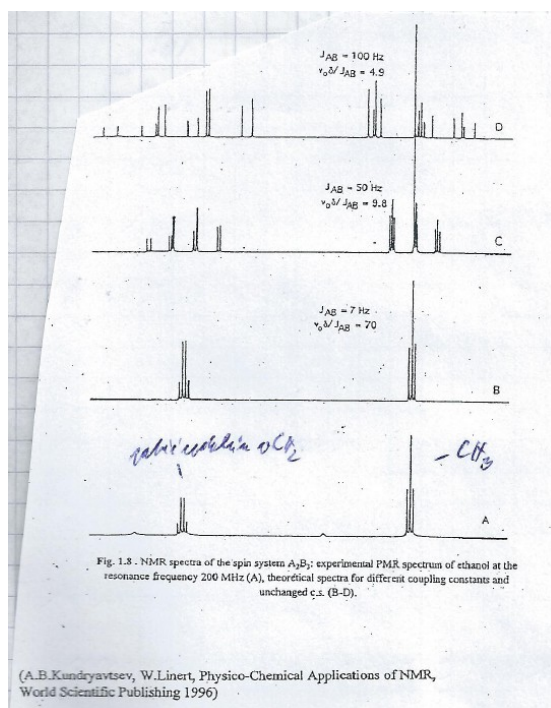 J_AB = 100 Hz
ν₀δ/J_AB = 4.9
D
J_AB = 50 Hz
ν₀δ/J_AB = 9.8
C
J_AB = 7 Hz
ν₀δ/J_AB = 70
B
CH₂
– CH₃
A
Fig. 1.8 . NMR spectra of the spin system A₂B₃: experimental PMR spectrum of ethanol at the
resonance frequency 200 MHz (A), theoretical spectra for different coupling constants and
unchanged c.s. (B-D).
(A.B.Kundryavtsev, W.Linert, Physico-Chemical Applications of NMR,
World Scientific Publishing 1996)